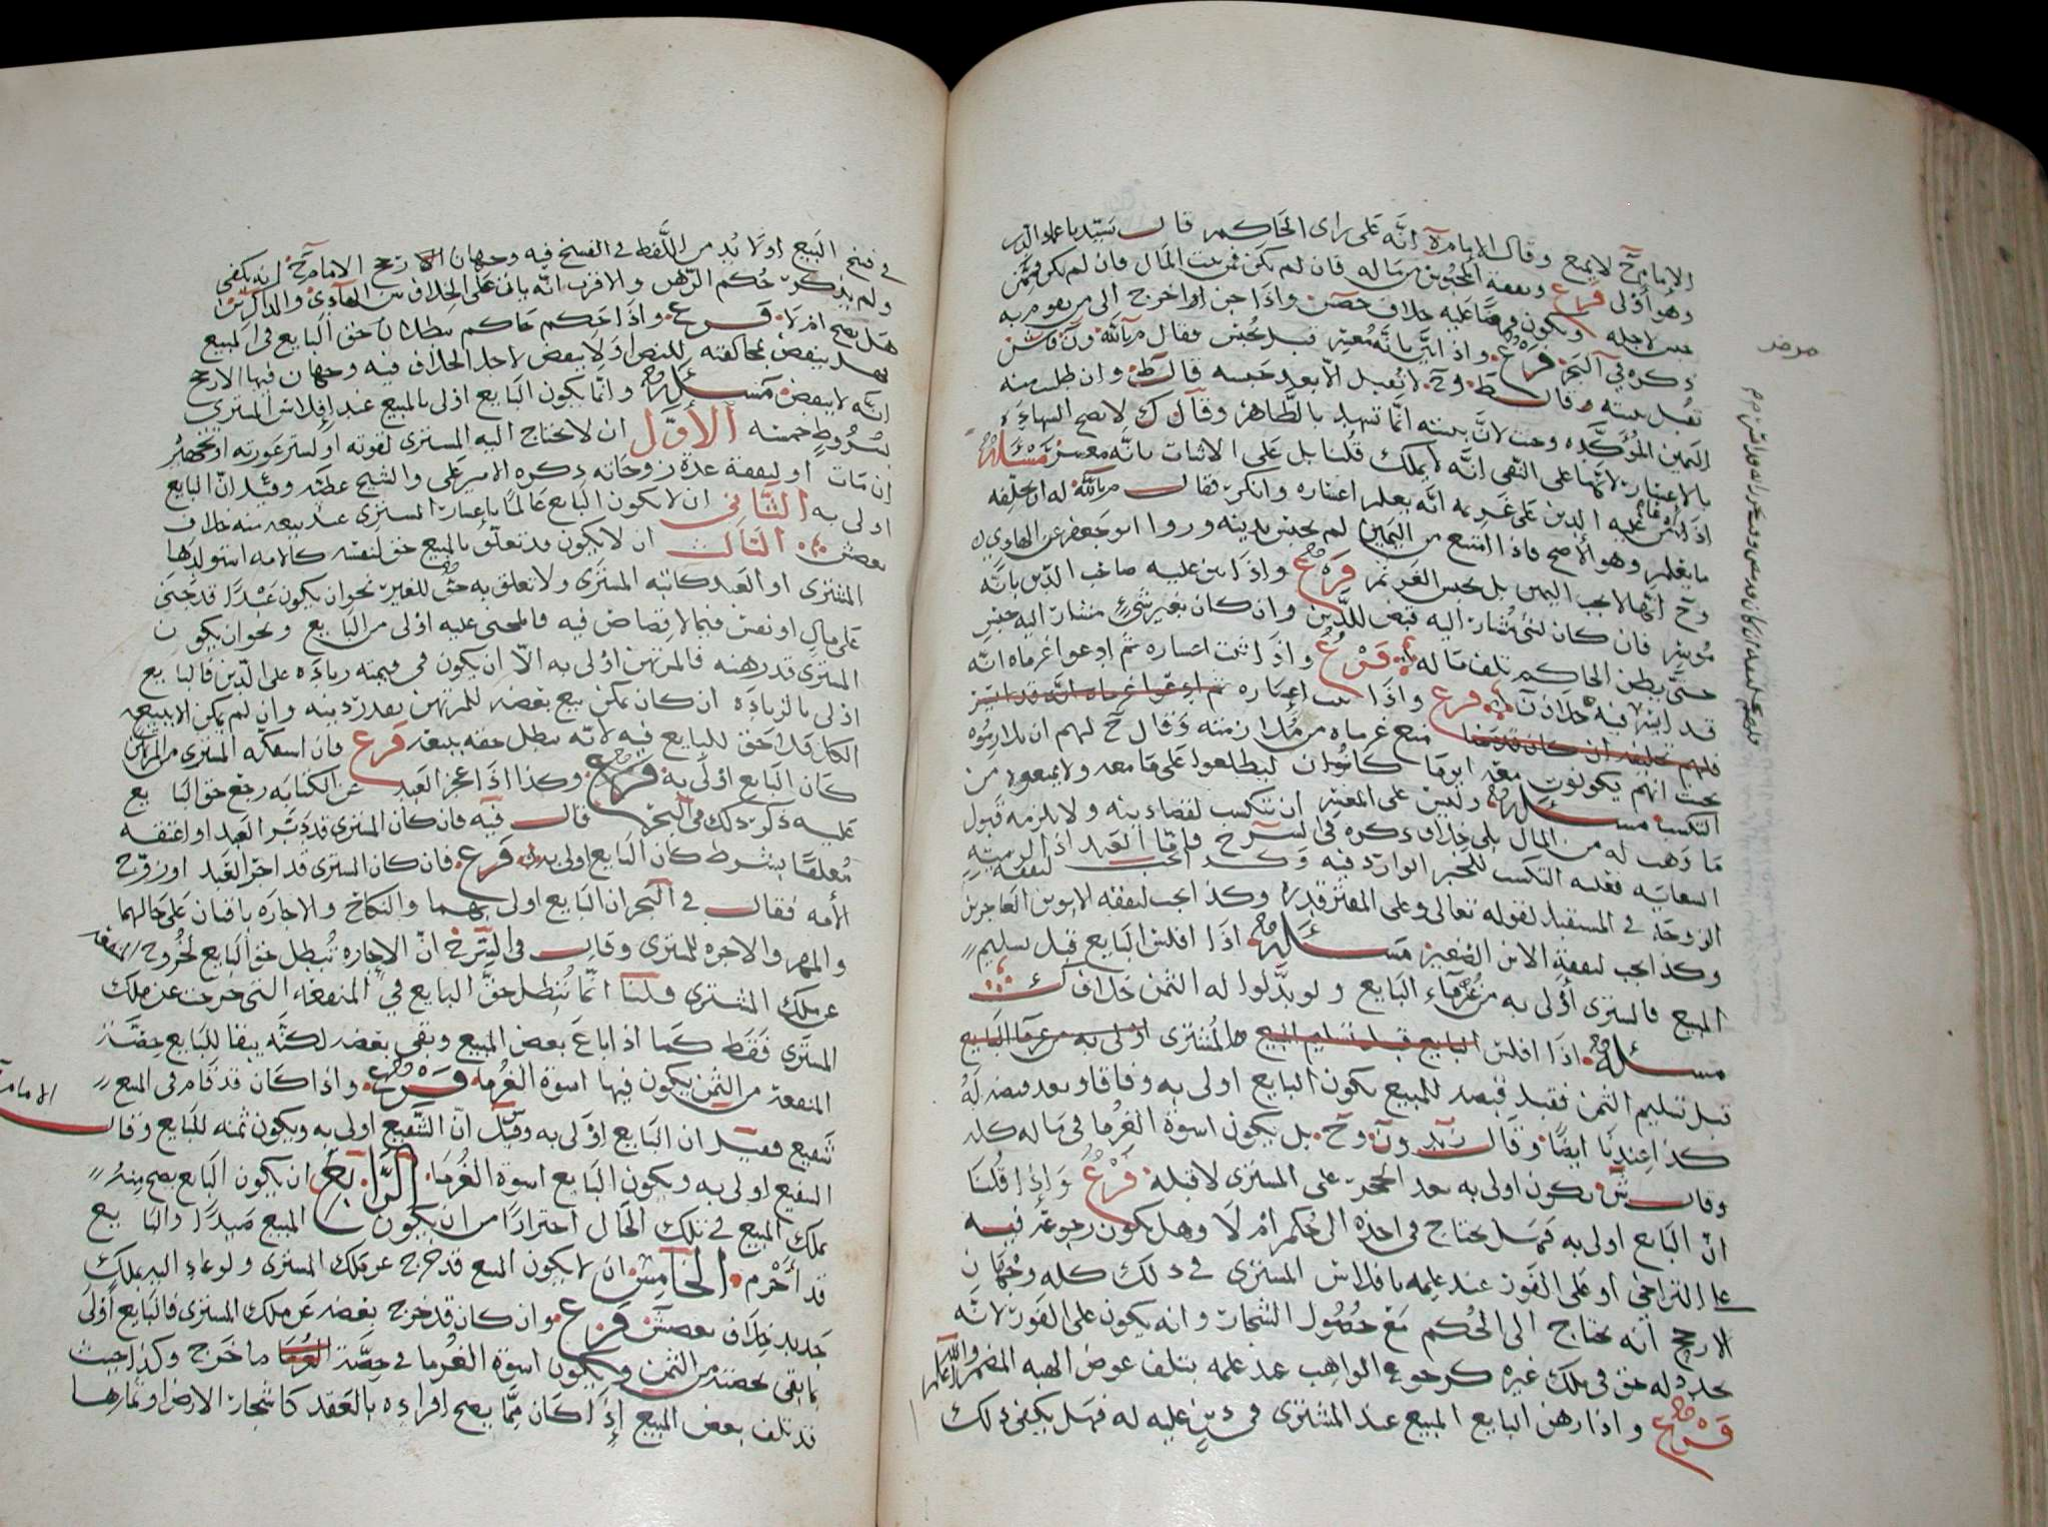 الامام ح لا يمنع وقال الامام انه على راى الحاكم قال سيدنا عماد الدين
وهو اولى فرع ونفقة المحبوس من ماله فان لم يكن فمن بيت المال فان لم يكن فممن
حبس لاجله ويكون عليه خلاف واذا جن اخرج الى من يقوم به
ذكره في البحر فرع واذا بانه معسر قبل حبس فقال
وقال ط وح لا تقبل الا بعد حبسه قال ط وان طلب منه
اليمين المؤكدة وجبت لان بينته انما تشهد بالظاهر وقال ك لا تصح الشهادة
بالاعسار لانها على النفي انه لا يملك قلنا بل على الاثبات بانه معسر مسئلة
عليه الدين على غريمه انه يعلم اعساره وانكر فقال له ان يحلفه
ما يعلم وهو الاصح فاذا امتنع من اليمين لم يحبس بدينه وروا ابو جعفر عن الهادي
وح انها لا تجب اليمين بل يحبس الغريم فرع واذا عليه صاحب الدين بانه
موسر فان كان لشئ مشار اليه قبض للدين وان كان بغير شيء مشار اليه حبس
حتى يظن الحاكم تلف ماله فرع واذا ثبت اعساره ثم ادعوا غرماه انه
قد ايسر ففيه خلاف فرع واذا ثبت اعساره ثم ادعوا غرماه انه قد ايسر
فلهم تحليفه ان كان منع غرماه من ملازمته وقال ح لهم ان يلازموه
بحيث انهم يكونون معه اينما كان ليطلعوا على ما معه ولا يمنعوه من
التكسب مسئلة وليس على المعسر ان يتكسب لقضاء دينه ولا يلزمه قبول
ما وهب له من المال على خلاف ذكره في الشرح فاما العبد اذا لزمته
السعاية فعليه التكسب للخبر الوارد فيه وكذا يجب لنفقة
الزوجة في المستقبل لقوله تعالى وعلى المقتر قدره وكذا يجب لنفقة الابوين العاجزين
وكذا يجب لنفقة الابن الصغير مسئلة اذا افلس البايع قبل تسليم
المبيع فالمشترى اولى به من غرماء البايع ولو بدلوا له الثمن خلاف ك
مسئلة اذا افلس البايع قبل تسليم المبيع فالمشترى اولى به من غرما البايع
قبل تسليم الثمن فقبل قبضه للمبيع يكون البايع اولى به وفاقا وبعد قبضه له
كذا عندنا ايضا وقال زيد ون وح بل يكون اسوة الغرما في ماله كله
وقال ش يكون اولى به بعد الحجر على المشترى لا قبله فرع واذا قلنا
ان البايع اولى به فهل يحتاج في اخذه الى حكم ام لا وهل يكون رجوعه فيه
على التراخي او على الفور عند علمه بافلاس المشترى في ذلك كله وجهان
الارجح انه يحتاج الى الحكم مع حصول التشجار وانه يكون على الفور لانه
تجدد له حق في ملك غيره كرجوع الواهب عند علمه بتلف عوض الهبة المضمر والله اعلم
فرع واذا رهن البايع المبيع عند المشترى في دين عليه له فهل يكفى ذلك
في فسخ البيع او لا بد من اللفظ في الفسخ فيه وجهان الارجح الامام ح انه يكفى
ولم يذكر حكم الرهن والاقرب انه ياتي على الخلاف بين الهادي والمذاكرين
هل يصح ام لا فرع واذا حكم حاكم ببطلان حق البايع في المبيع
هل ينقض لمخالفته للنص او لا ينقض لاجل الخلاف فيه وجهان فيها الارجح
انه لا ينقض مسئلة وانما يكون البايع اولى بالمبيع عند افلاس المشترى
بشروط خمسة الاول ان لا يحتاج اليه المشترى لقوته او لستر عورته او تجهيزه
ان مات او لنفقة عدة زوجاته ذكره الامير علي والشيخ عطية وقيل ان البايع
اولى به الثاني ان لا يكون البايع عالما باعسار المشترى عند بيعه منه خلاف
بعض ش الثالث ان لا يكون قد تعلق بالمبيع حق لنفسه كالامة استولدها
المشترى او العبد كاتبه المشترى ولا تعلق به حق للغير نحو ان يكون عبدا قد جنى
على مال او نفس فيما لا قصاص فيه فالمجنى عليه اولى من البايع ونحو ان يكون
المشترى قد رهنه فالمرتهن اولى به الا ان يكون في قيمته زيادة على الدين فالبايع
اولى بالزيادة ان كان يمكن بيع بعضه للمرتهن بقدر دينه وان لم يمكن الا ببيعه
الكل فلا حق للبايع فيه لانه بطل حقه ببيعه فرع فان استفكه المشترى من المرتهن
كان البايع اولى به فرع وكذا اذا عجز العبد عن الكتابة رجع حق البايع
عليه ذكر ذلك في البحر قال فيه فان كان المشترى قد دبر العبد او اعتقه
معلقا بشرط كان البايع اولى به فرع فان كان المشترى قد اجر العبد او زوج
الأمه فقال في البحر ان البايع اولى بهما والنكاح والاجارة باقيان على حالهما
والمهر والاجرة للمشترى وقال في الشرح ان الاجارة تبطل حق البايع لخروج المنفعة
عن ملك المشترى قلنا انما تبطل حق البايع في المنفعة التي خرجت عن ملك
المشترى فقط كما اذا باع بعض المبيع وبقي بعضه لكنه يبقا للبايع حصة
المنفعة من الثمن يكون فيها اسوة الغرما فرع واذا كان قد قام في المبيع
شفيع فقيل ان البايع اولى به وقيل ان الشفيع اولى به ويكون ثمنه للبايع وقال الامام
الشفيع اولى به ويكون البايع اسوة الغرما الرابع ان يكون البايع يصح منه
تملك المبيع في تلك الحال احترازا من ان يكون المبيع صيدا والبايع
قد احرم الخامس ان لا يكون المبيع قد خرج عن ملك المشترى ولو عاد اليه بملك
جديد خلاف بعض ش فرع وان كان قد خرج بعضه عن ملك المشترى فالبايع اولى
بما بقي بحصته من الثمن ويكون اسوة الغرما في حصة ما خرج وكذا حيث
قد تلف بعض المبيع اذا كان مما يصح افراده بالعقد كاشجار الارض او ثمارها